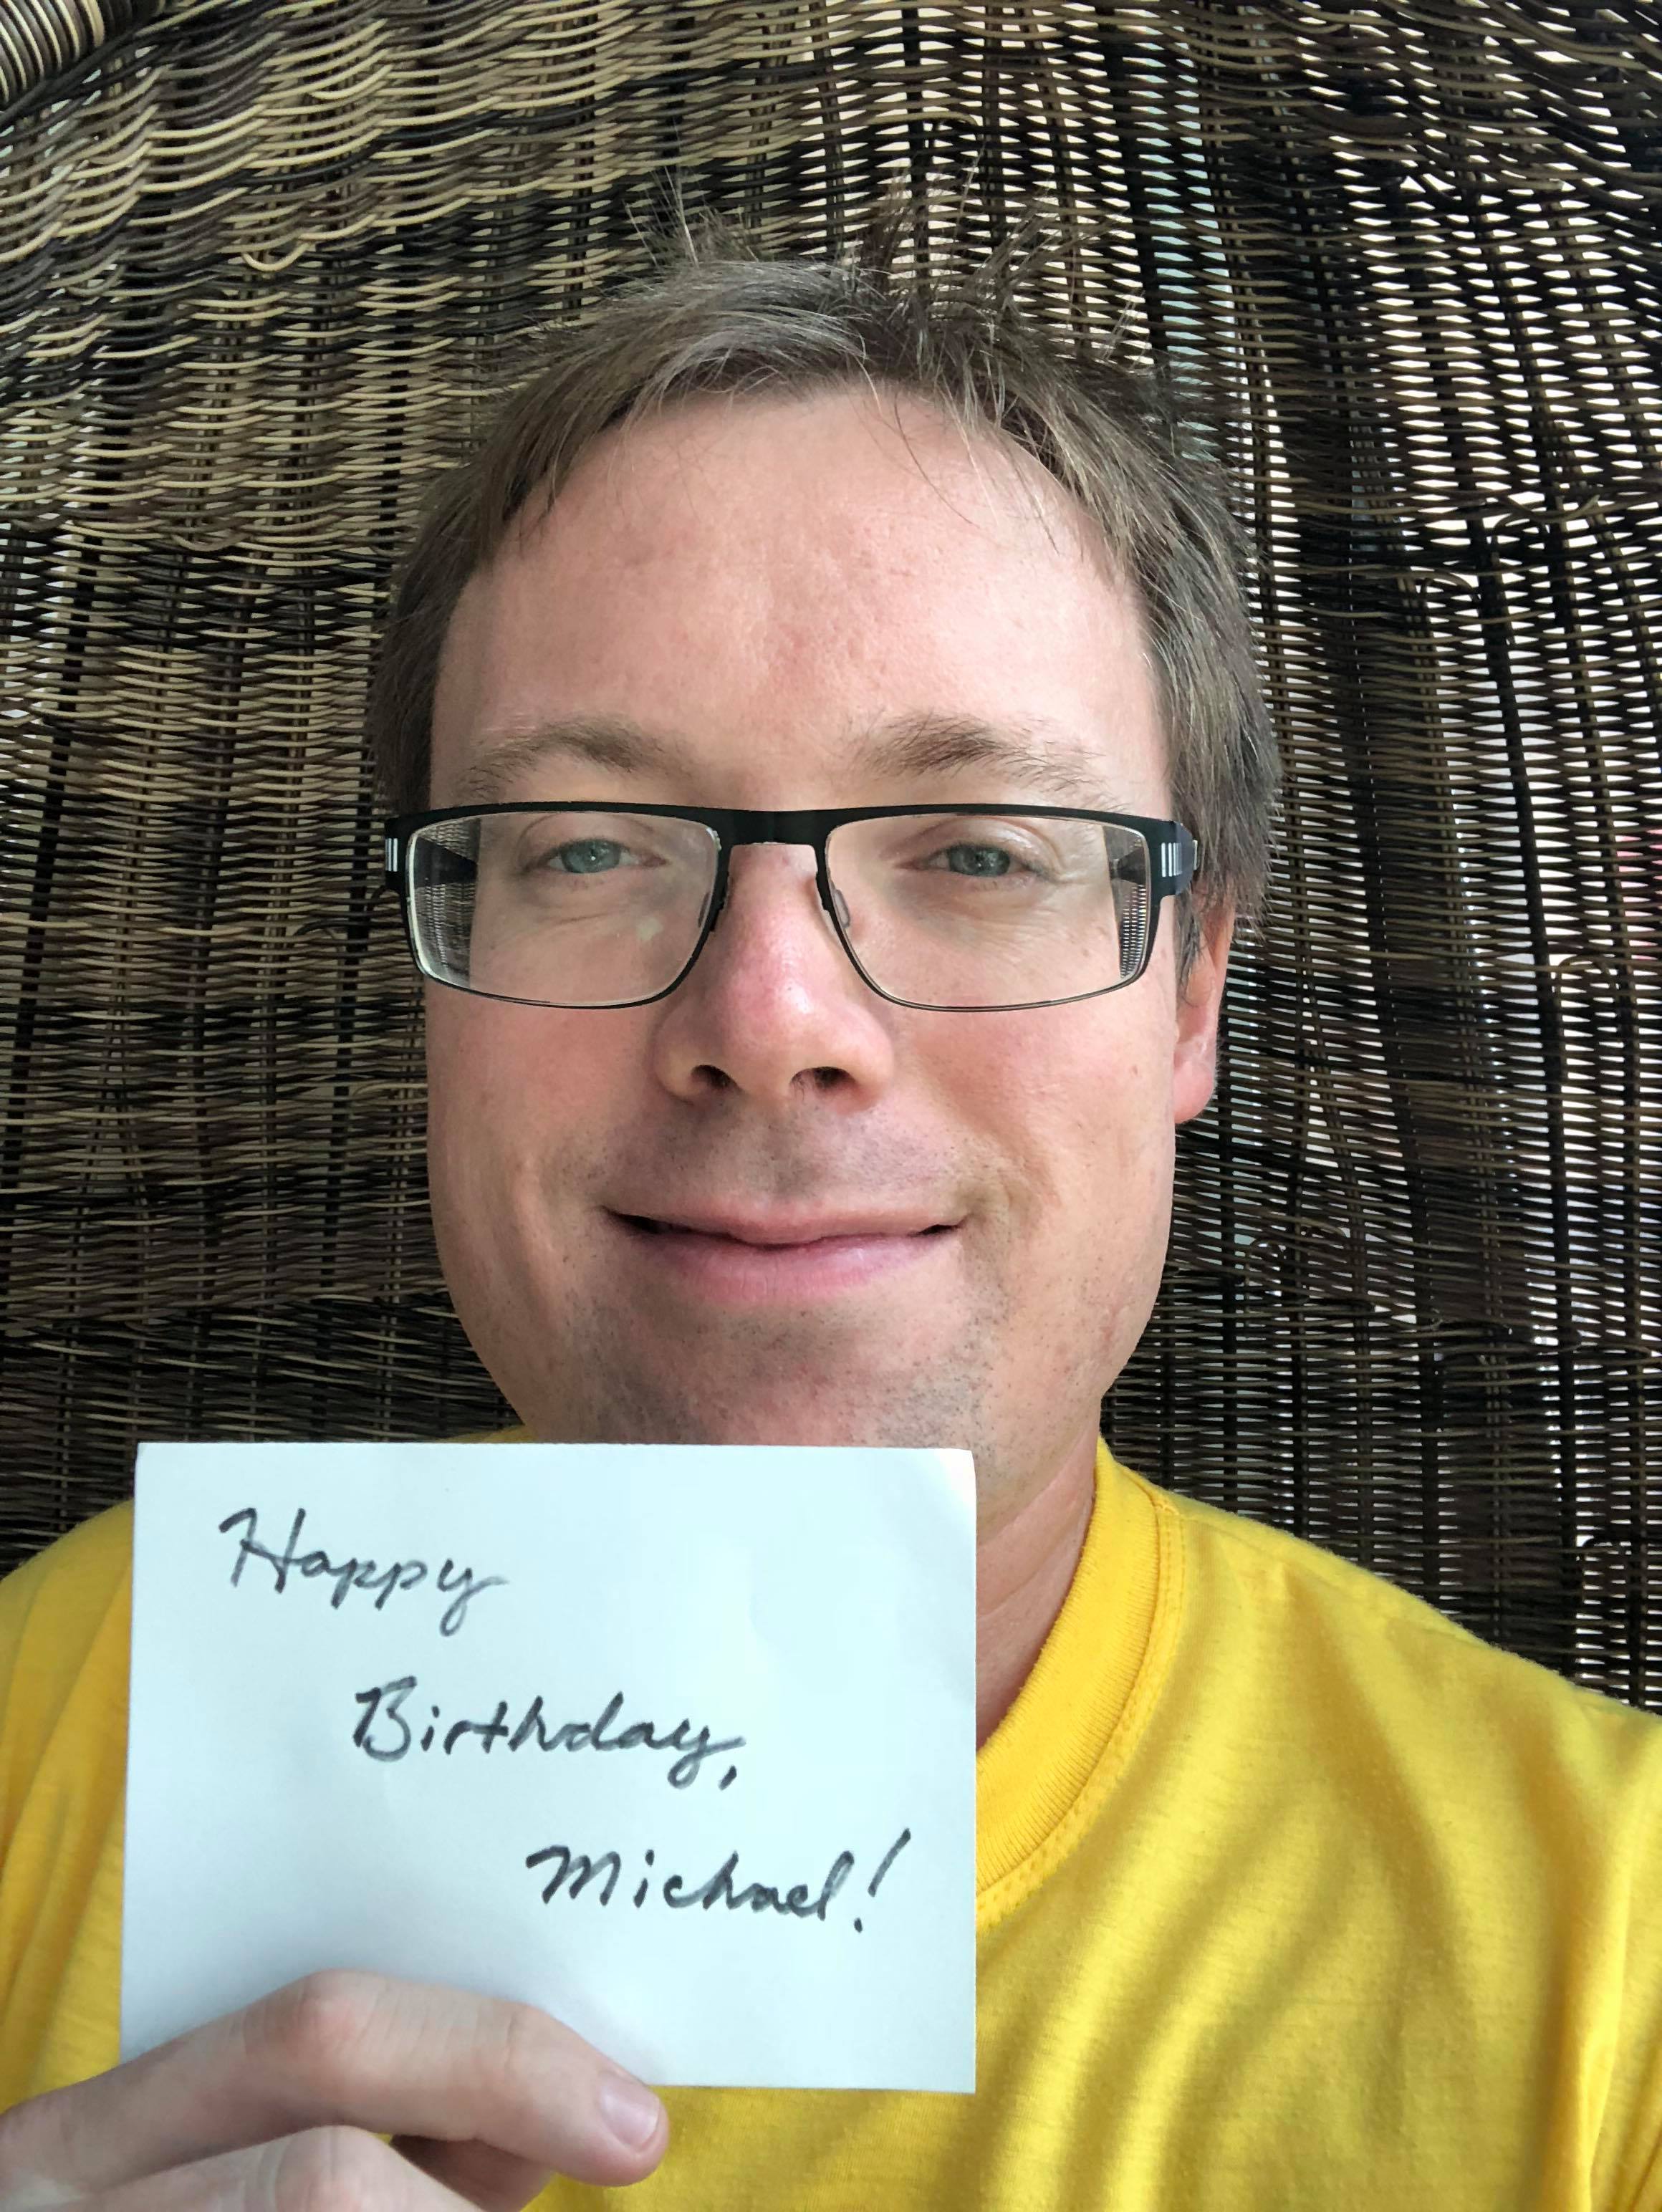 Happy
Birthday,
Michael!